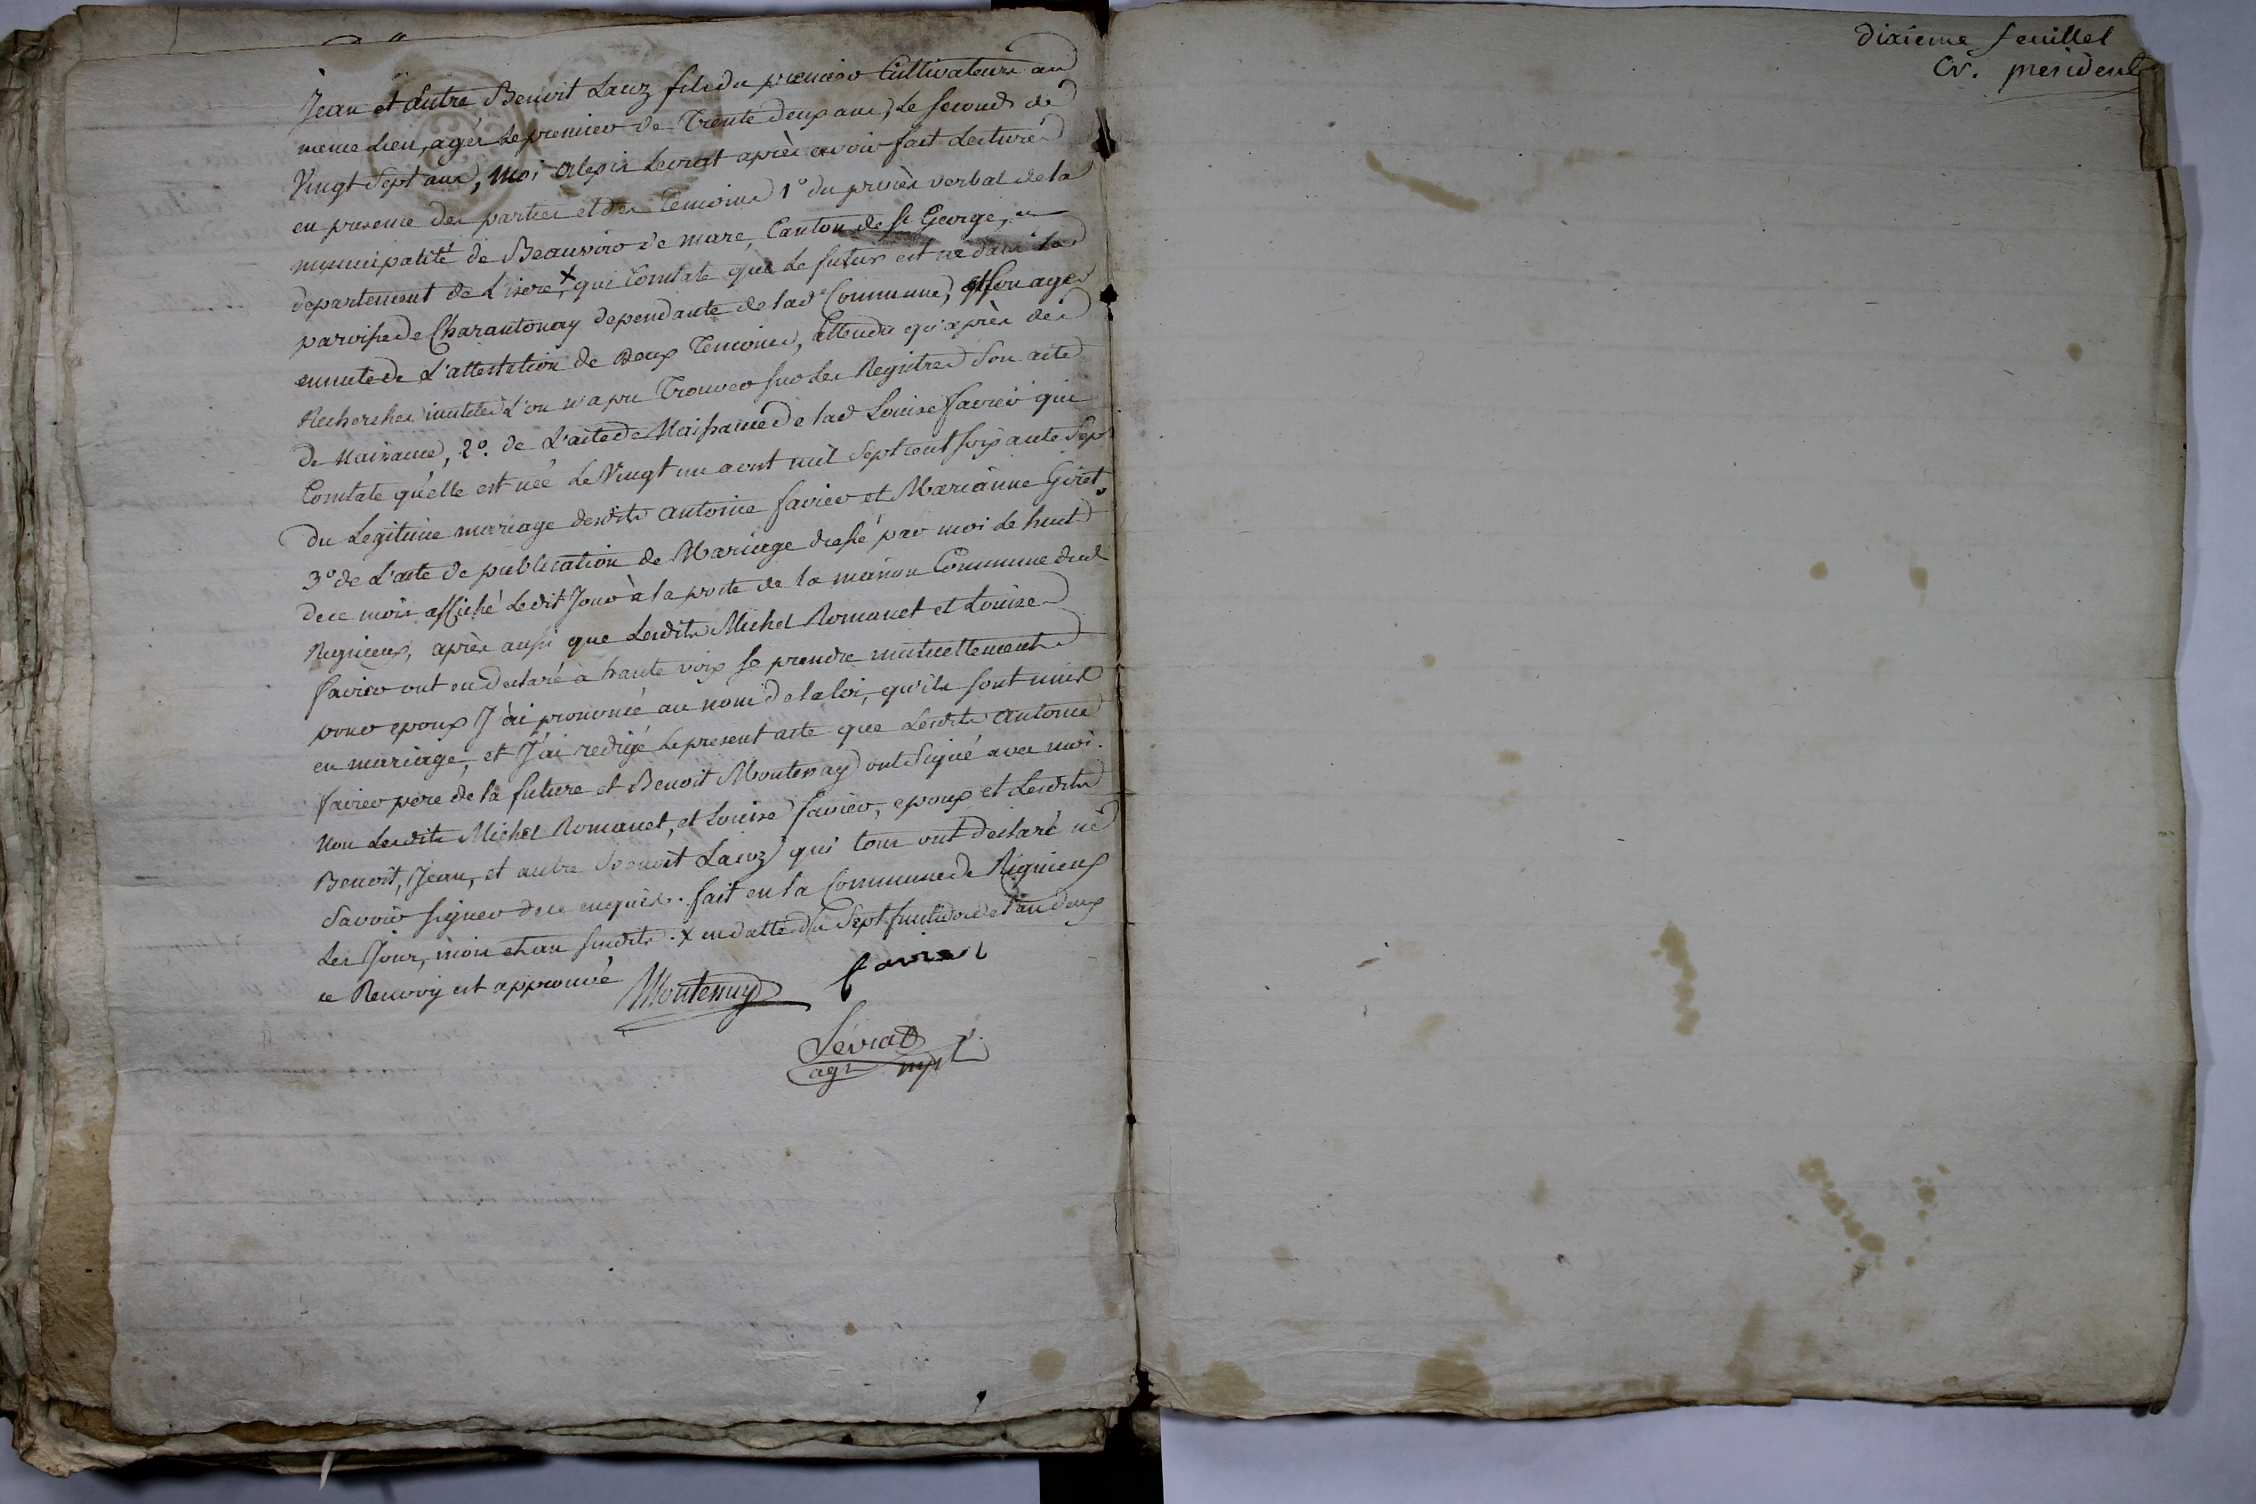 Jean et autre Benoit Lauz fils du premier Cultivateurs au
meme Lieu, agés Le premier de Trente deux ans, Le second de
Vingt Sept ans, Moi Alexis Levrat après avoir fait Lecture
en presence des parties et des Temoins 1° du procès verbal de la
municipalité de Beauvoir de marc, Canton de St George,
departement de L'isere, x qui Constate que Le futur est né dans la
paroisse de Charantonay dependante de lad. Commune, et son age
ensuite de L'attestation de Deux Temoins, attendu qu'après des
Recherches inutiles L'on n'a pu Trouver sur Les Registres Son acte
de Naissance, 2°. de L'acte de Naissance de lad Louise favier qui
Constate qu'elle est née Le Vingt un aout mil Sept cent soixante Sept
du Legitime mariage desdits antoine favier et Marianne Giret
3° de L'acte de publication de Mariage dressé par moi Le huit
de ce mois affiché Ledit Jour à la porte de la maison Commune dud
Rignieux, après aussi que Lesdits Michel Romanet et Louise
favier ont eu declaré à haute voix se prendre mutuellement
pour epoux J'ai prononcé au nom de la loi, qu'ils sont unis
en mariage, et J'ai redigé Le present acte que Lesdits antoine
favier pere de la future et Benoit Montessuy ont Signé avec moi.
Non Lesdits Michel Romanet, et Louise favier, epoux et Lesdits
Benoit, Jean, et autre Benoit Lauz qui tous ont declaré ne
Savoir signer de ce enquis. fait en la Commune de Rignieux
Les Jour, mois et an susdits. x en datte du Sept fructidor de l'an deux
ce Renvoy est approuvé
Montessuy favier
Levrat
agt mpl
dixieme feuillet
Cv. president